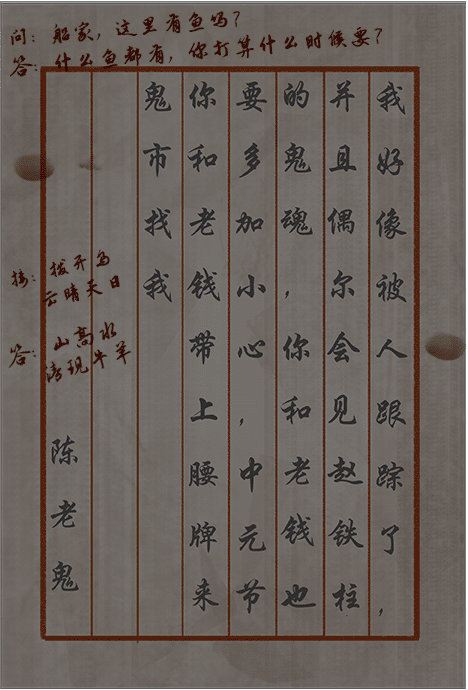 问：船家，这里有鱼吗？
答：什么鱼都有，你打算什么时候要？
我好像被人跟踪了，
并且偶尔会见赵铁柱
的鬼魂，你和老钱也
要多加小心，中元节
你和老钱带上腰牌来
鬼市找我
接：拨开乌
云晴天日
答：山高水
清现牛羊
陈老鬼